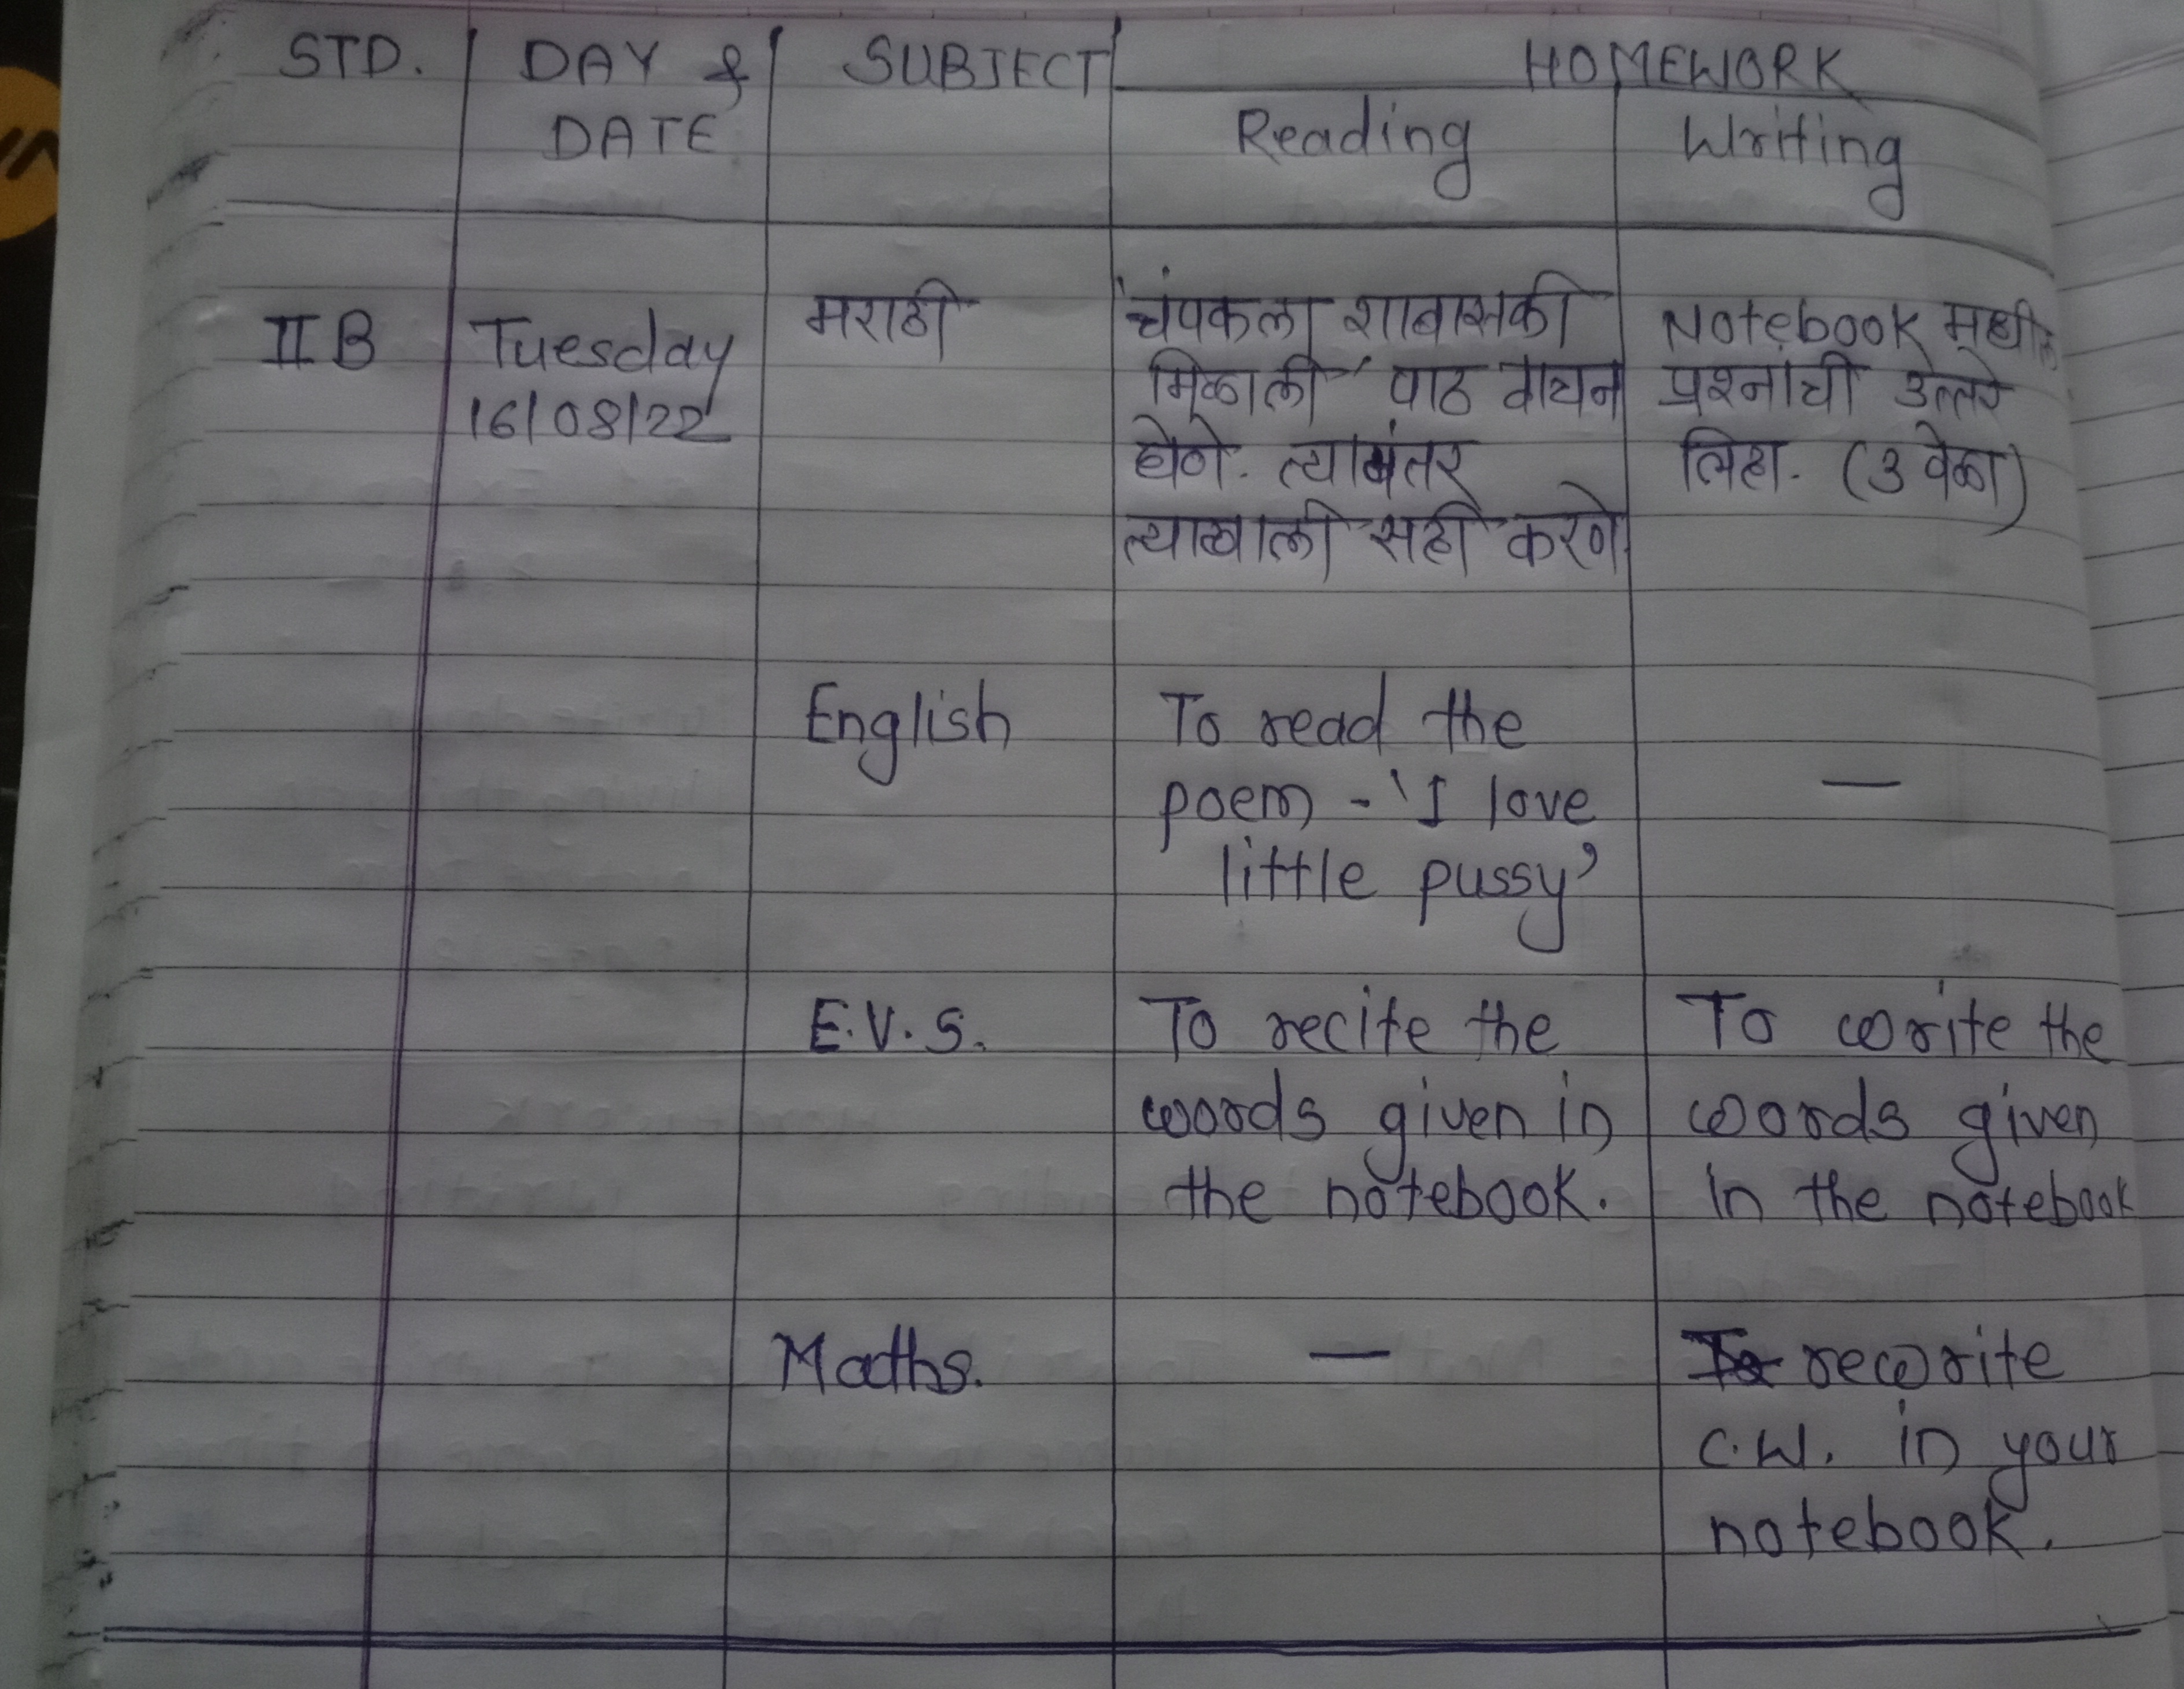 STD. DAY & SUBJECT HOMEWORK
DATE Reading Writing
II B Tuesday मराठी 'चंपकला शाबासकी Notebook मधील
16/08/22 मिळाली' पाठ वाचन प्रश्नांची उत्तरे
घेणे. त्यानंतर लिहा. (3 वेळा)
त्याखाली सही करणे.
English To read the
poem - 'I love —
little pussy'
E.V.S. To recite the To write the
words given in words given
the notebook. in the notebook
Maths. — rewrite
C.W. in your
notebook.